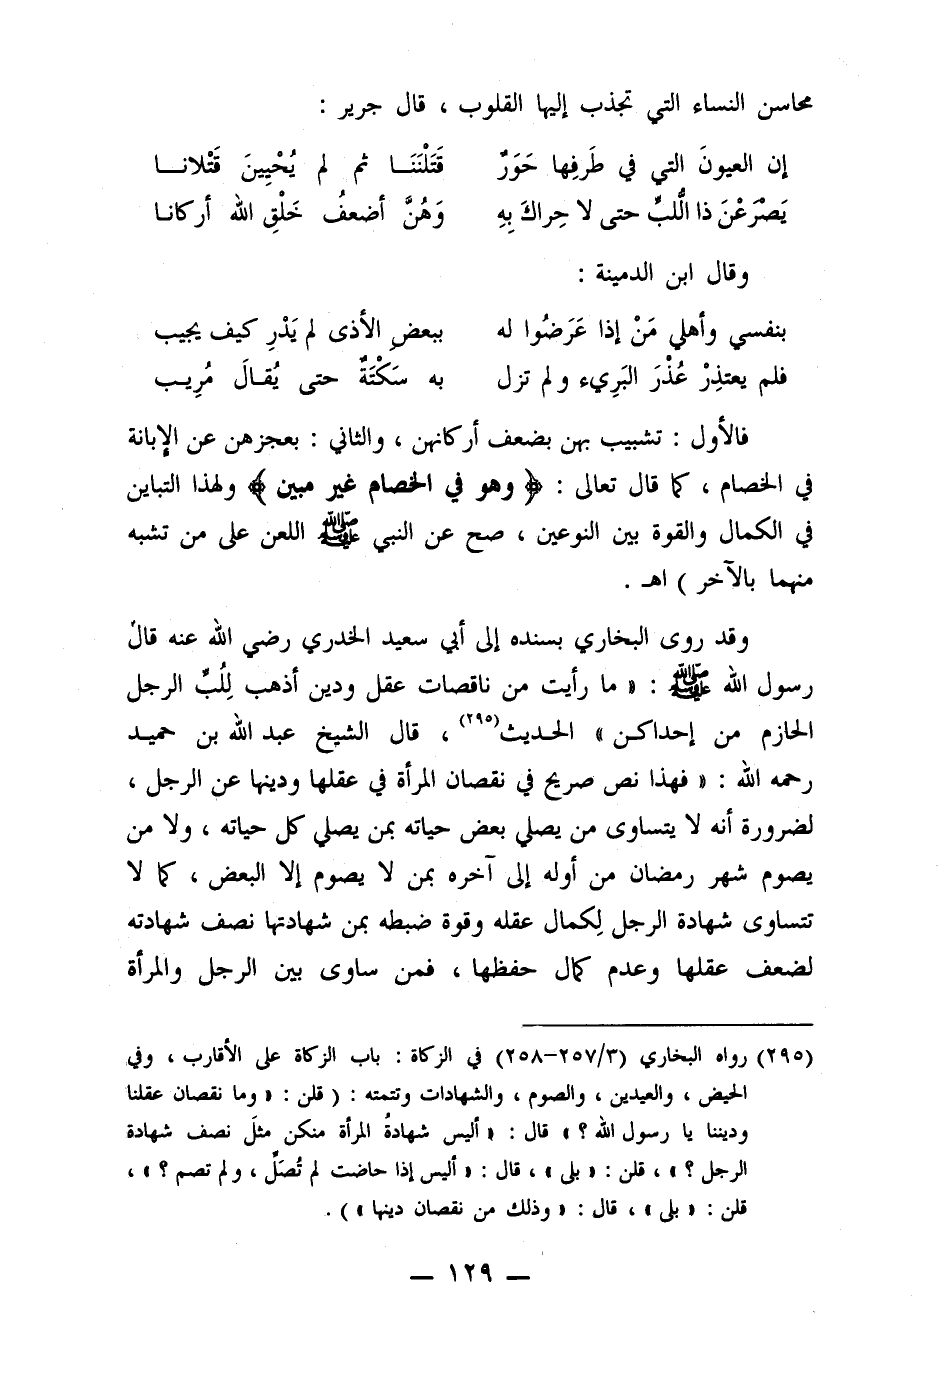 محاسن النساء التي تجذب إليها القلوب ، قال جرير :
إن العيونَ التي في طَرفِها حَوَرٌ قَتَلْنَنَـا ثم لم يُحْيِينَ قَتْلانـا
يَصْرَعْنَ ذا الُّلبِّ حتى لا حِراكَ بِهِ وَهُنَّ أضعفُ خَلْقِ الله أركانـا
وقال ابن الدمينة :
بنفسي وأهلي مَنْ إذا عَرَضُوا له ببعضِ الأذى لم يَدْرِ كيف يجيب
فلم يعتذِرْ عُذْرَ البَرِيء ولم تزل به سَكْتَةٌ حتى يُقـالَ مُرِيـب
فالأول : تشبيب بهن بضعف أركانهن ، والثاني : بعجزهن عن الإبانة
في الخصام ، كما قال تعالى : ﴿ وهو في الخصام غير مبين ﴾ ولهذا التباين
في الكمال والقوة بين النوعين ، صح عن النبي ﷺ اللعن على من تشبه
منهما بالآخر ) اهـ .
وقد روى البخاري بسنده إلى أبي سعيد الخدري رضي الله عنه قال
رسول الله ﷺ : « ما رأيت من ناقصات عقل ودين أذهب لِلُبِّ الرجل
الحازم من إحداكـن » الحـديث(٢٩٥) ، قال الشيخ عبد الله بن حميـد
رحمه الله : « فهذا نص صريح في نقصان المرأة في عقلها ودينها عن الرجل ،
لضرورة أنه لا يتساوى من يصلي بعض حياته بمن يصلي كل حياته ، ولا من
يصوم شهر رمضان من أوله إلى آخره بمن لا يصوم إلا البعض ، كما لا
تتساوى شهادة الرجل لِكمال عقله وقوة ضبطه بمن شهادتها نصف شهادته
لضعف عقلها وعدم كمال حفظها ، فمن ساوى بين الرجل والمرأة
(٢٩٥) رواه البخاري (٣/٢٥٧–٢٥٨) في الزكاة : باب الزكاة على الأقارب ، وفي
الحيض ، والعيدين ، والصوم ، والشهادات وتتمته : ( قلن : « وما نقصان عقلنا
وديننا يا رسول الله ؟ » قال : « أليس شهادةُ المرأة منكن مثلَ نصف شهادة
الرجل ؟ » ، قلن : « بلى » ، قال : « أليس إذا حاضت لم تُصَلِّ ، ولم تصم ؟ » ،
قلن : « بلى » ، قال : « وذلك من نقصان دينها » ) .
— ١٢٩ —